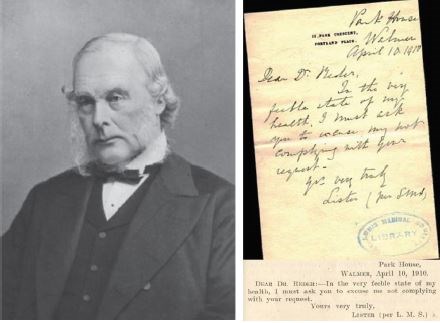 Park House
12, PARK CRESCENT,
PORTLAND PLACE.
Walmer
April 10, 1910
Dear Dr. Reder,
In the very
feeble state of my
health, I must ask
you to excuse my not
complying with your
request.
Yrs. very truly
Lister
MEDICAL
LIBRARY
Park House,
WALMER, April 10, 1910.
DEAR DR. REDER:—In the very feeble state of my
health, I must ask you to excuse me not complying
with your request.
Yours very truly,
LISTER (per L. M. S.)